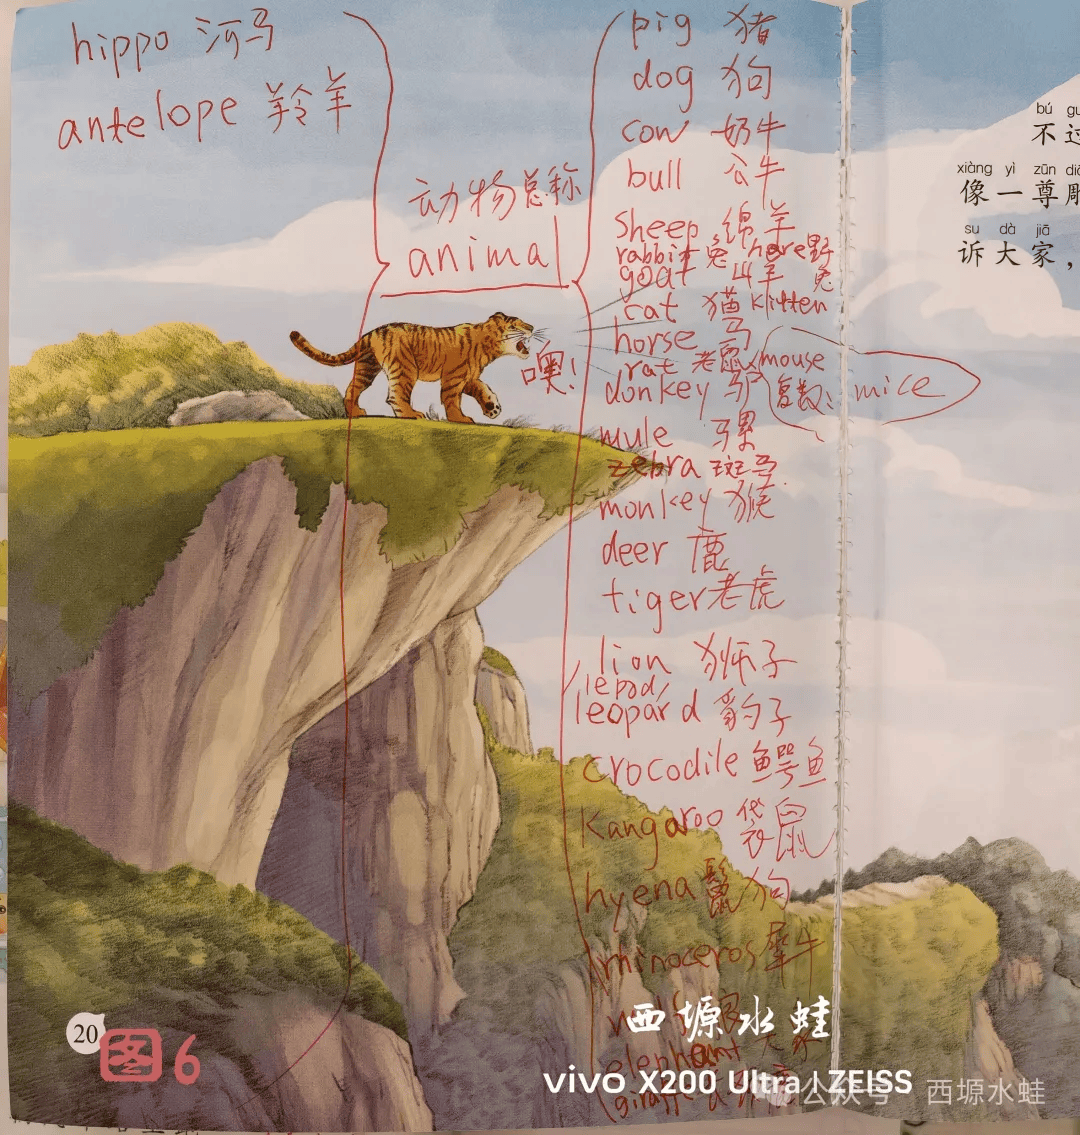 hippo 河马
antelope 羚羊
动物总称
animal
pig 猪
dog 狗
cow 奶牛
bull 公牛
sheep 绵羊
rabbit 兔 hare 野兔
goat 山羊
cat 猫 kitten
horse 马
rat 老鼠 mouse
复数: mice
donkey 驴
噢!
mule 骡
zebra 斑马
monkey 猴
deer 鹿
tiger 老虎
lion 狮子
leopard 豹子
crocodile 鳄鱼
Kangaroo 袋鼠
hyena 鬣狗
rhinoceros 犀牛
elephant
giraffe
bú
不过
xiàng yì zūn
像一尊雕
su dà jiā
诉大家，
20
图6
西塬水蛙
vivo X200 Ultra | ZEISS
公众号 西塬水蛙